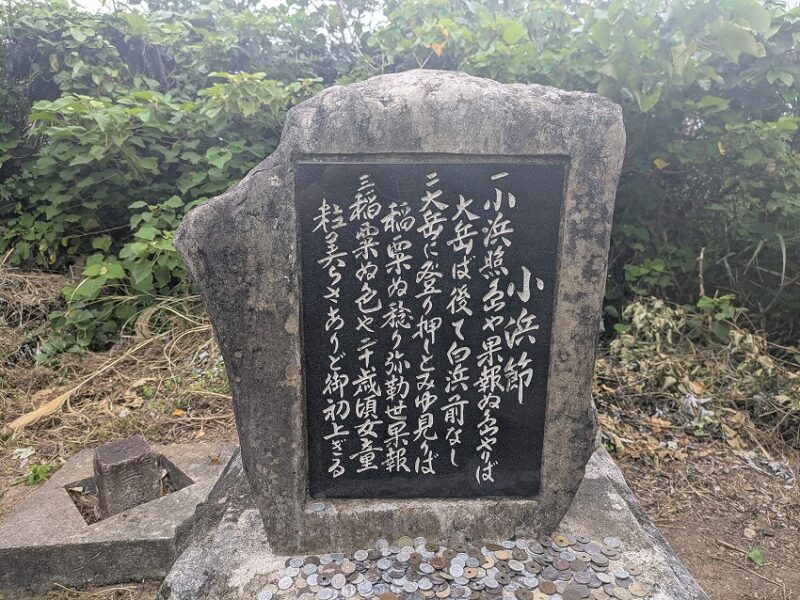 小浜節
一 小浜照島や果報ぬ島やりば
大岳ば後て白浜前なし
二 大岳に登り押しとみゆ見りば
稲粟ぬ稔り弥勒世果報
三 稲粟ぬ色や二十歳頃女童
粒の美らさありど御初上ぎる